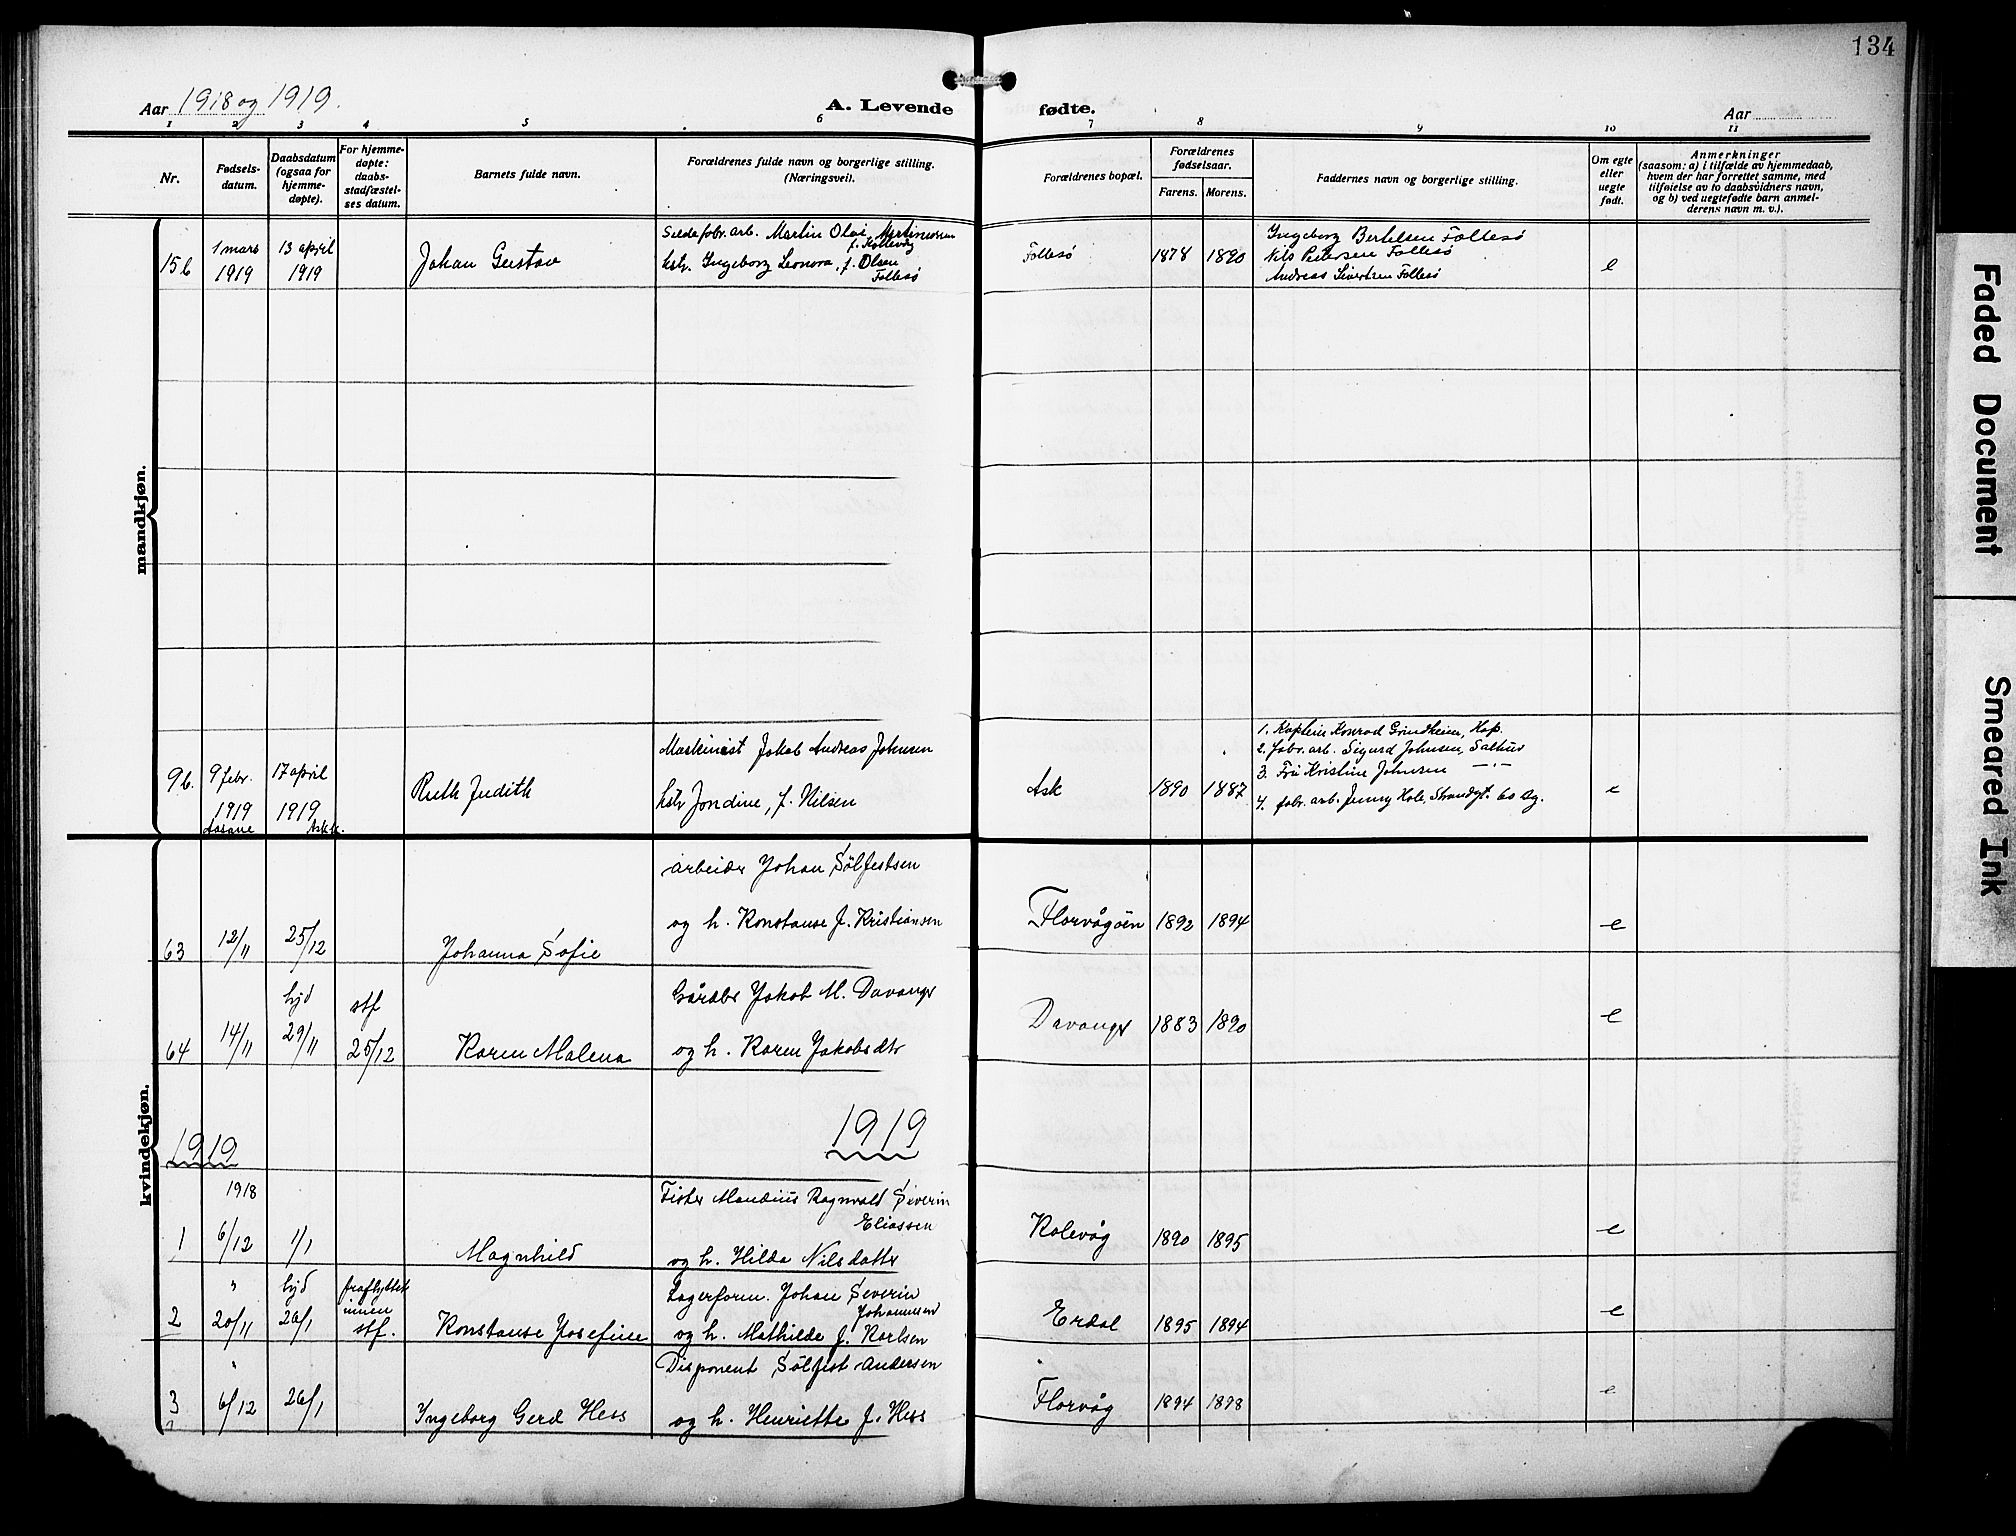 134
Aar 1918 og 1919.
A. Levende fødte.
Aar
1 2 3 4 5 6 7 8 9 10 11
Nr.
Fødsels-
datum.
Daabsdatum
(ogsaa for
hjemme-
døpte).
For hjemme-
døpte:
daabs-
stadfæstel-
ses datum.
Barnets fulde navn.
Forældrenes fulde navn og borgerlige stilling.
(Næringsvei).
Forældrenes bopæl.
Forældrenes
fødselsaar.
Farens. Morens.
Faddernes navn og borgerlige stilling.
Om egte
eller
uegte
født.
Anmerkninger
(saasom: a) i tilfælde av hjemmedaab,
hvem der har forrettet samme, med
tilføielse av to daabsvidners navn,
og b) ved uegtefødte barn anmel-
derens navn m. v.).
mandkjøn.
15b
1 mars
1919
13 april
1919
Johan Gustav
Sildefabr. arb. Martin Olai Martinussen
f. Kollevåg
hstr. Ingeborg Leonora, f. Olsen
Follesø
Follesø 1878 1890
Ingeborg Bertelsen Follesø
Nils Petersen Follesø
Andreas Sivertsen Follesø
e
9b.
9 febr.
1919
Aasane
17 april
1919
Askk.
Ruth Judith
Maskinist Jakob Andreas Johnsen
hstr Jondine, f. Nilsen
Ask 1890 1887
1. Kaptein Konrad Grindheim, Hop.
2. fabr. arb. Sigurd Johnsen, Salhus
3. Fru Kristine Johnsen — " —
4. fabr. arb. Jenny Hole, Strandgt. 60 Bg.
e
kvindekjøn.
63 12/11 25/12
Johanna Sofie
arbeider Johan Sølfestsen
og h. Konstanse f. Kristiansen
Florvågøen 1892 1894 e
64 14/11
hjd
29/11
stf
25/12
Karen Malena
Gårdbr Jakob M. Davanger
og h. Karen Jakobsdtr
Davanger 1883 1890 e
1919
1919
1918
1 6/12 1/1
Magnhild
Fisker Mandius Ragnvald Severin
Eliassen
og h. Hilda Nilsdatter
Kolevåg 1890 1895 e
2 " 20/11
hjd
26/1
fraflyttet
innen
stf.
Konstanse Josefine
Lagerform. Johan Severin
Johannesen
og h. Mathilde f. Karlsen
Erdal 1895 1894 e
3 " 6/12 26/1
Ingeborg Gerd Hess
Disponent Sølfest Andersen
og h. Henriette f. Hess
Florvåg 1894 1898 e
Faded Document
Smeared Ink